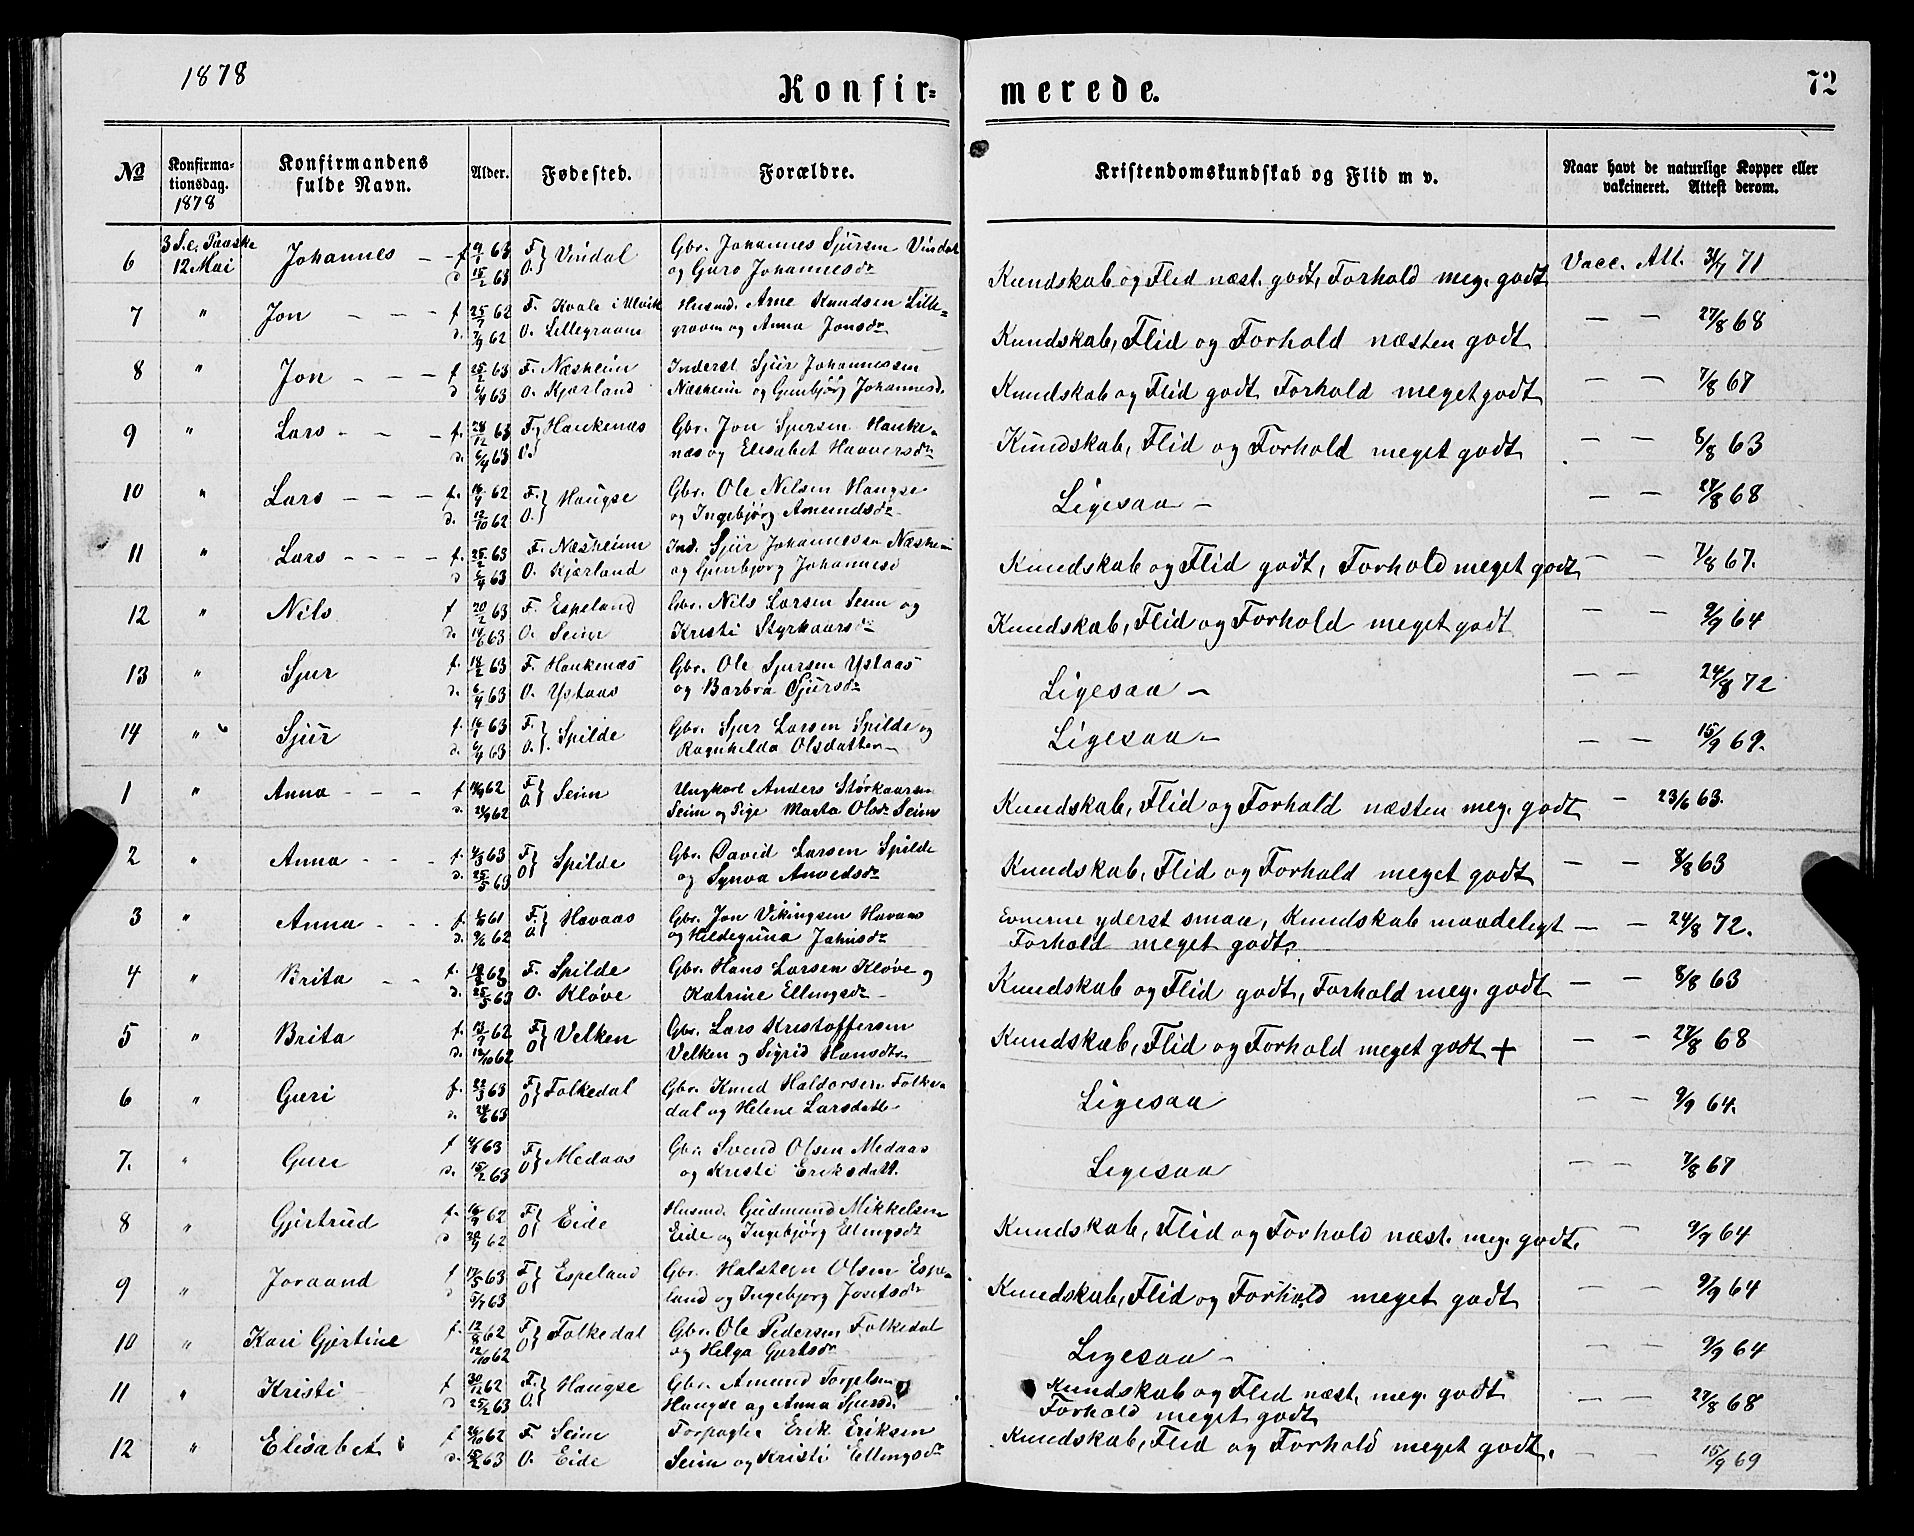 1878
Konfir-
merede.
72
No
Konfirma-
tionsdag.
1878
Konfirmandens
fulde Navn.
Alder.
Fødested.
Forældre.
Kristendomskundskab og Flid m v.
Naar havt de naturlige Kopper eller
vakcineret. Attest derom.
6 3 S. e. Paaske Johannes f 9/1 63 F. Vindal Gbr. Johannes Sjursen Vindal
12 Mai d 15/2 63 O. og Guro Johannesdr
Kundskab og Flid næst. godt, Forhold meg. godt Vacc. Att. 71
7 " Jon f 25/7 62 F. Kvale i Ulvik Husmd. Arne Knudsen Lille-
d. 7/9 62 O. Lillegraven graven og Anna Jonsdr
Kundskab, Flid og Forhold næsten godt — — 27/8 68
8 " Jon f 25/2 63 F. Næsheim Inderst Sjur Johannessen
d 6/4 63 O. Kjærland Næsheim og Gunbjørg Johannesd.
Kundskab og Flid godt Forhold meget godt — — 7/8 67
9 " Lars f. 28/12 63 F. Hankenæs Gbr. Jon Sjursen Hanke-
d. 6/4 63 O. næs og Elisabet Haaversdr
Kundskab, Flid og Forhold meget godt — — 8/8 63
10 " Lars f. 16/9 62 F. Haugse Gbr. Ole Nilsen Haugse
d. 12/10 62 O. og Ingebjørg Amundsdr
Ligesaa — — — 27/8 68
11 " Lars f. 25/2 63 F. Næsheim Ind. Sjur Johannesen Næsheim
d 6/4 63 O. Kjærland og Gunbjørg Johannesd
Kundskab og Flid godt, Forhold meget godt — — 7/8 67.
12 " Nils f 20/2 63 F. Espeland Gbr. Nils Larsen Seim og
d. 14/6 63 O. Seim Kristi Styrkaarsdr
Kundskab, Flid og Forhold meget godt — — 9/9 64
13 " Sjur f. 14/2 63 F. Hankenæs Gbr. Ole Sjursen Ystaas
d. 6/4 63 O. Ystaas og Barbra Sjursdr
Ligesaa — — — 24/8 72
14 " Sjur f. 63 F. Spilde Gbr. Sjur Larsen Spilde og
d. 6/4 63 O. Ragnhilda Olsdatter
Ligesaa — — — 15/9 69.
1 " Anna f 62 F. Seim Ungkarl Anders Störkaarsen
d. 21/9 62 O. Seim og Pige Marta Olsdr Seim
Kundskab, Flid og Forhold næsten meg. godt — 23/6 63.
2 " Anna f. 4/3 63 F. Spilde Gbr. David Larsen Spilde
d. 25/5 63 O og Synva Anvedsdr
Kundskab, Flid og Forhold meget godt — — 8/8 63
3 " Anna f 61 F. Havaas Gbr. Jon Vikingsen Havaas
d. 9/6 62 O. og Hildeguna Jahnsdr
Evnerne yderst smaa, Kundskab maadeligt — — 24/8 72.
Forhold meget godt.
4 " Brita f. 62 F. Spilde Gbr. Hans Larsen Kløve og
d. 25/5 63 O. Kløve Katrine Ellingsdr
Kundskab og Flid godt, Forhold meg. godt — — 8/8 63
5 " Brita f. 13/9 62 F. Velken Gbr. Lars Kristoffersen
d. 12/10 62 O Velken og Sigrid Hansdtr
Kundskab, Flid og Forhold meget godt + — — 27/8 68
6 " Guri f. 22/3 63 F. Folkedal Gbr. Knud Haldorsen Folke-
d. 24/6 63 O dal og Helene Larsdatt.
Ligesaa — — 9/9 64.
7. " Guri f 63 F. Medaas Gbr. Svend Olsen Medaas
d. 15/2 63 O og Kristi Eriksdatt.
Ligesaa — — 7/8 67
8 " Gjertrud f. 16/9 62 F. Eide Husmd. Gudmund Mikkelsen
d 62 O Eide og Ingebjørg Ellingsdr
Kundskab, Flid og Forhold næst. meg. godt. 9/9 64
9 " Joraand f 17/5 63 F. Espeland Gbr. Halstein Olsen Espe-
d 5/7 63 O land og Ingebjørg Josefsdr
Kundskab, Flid og Forhold meget godt — — 9/9 64
10 " Kari Gjertine f. 12/8 62 F. Folkedal Gbr. Ole Pedersen Folkedal
12/10 62 O og Helga Gjertsdr
Ligesaa — — — 9/9 64
11 " Kristi f 30/12 62 F. Haugse Gbr. Amund Torgelsen
d 25/2 63 O. Haugse og Anna Sjursd.
Kundskab og Flid næst. meg. godt — — 27/8 68
Forhold meget godt
12 " Elisabet f 26/10 62 F Seim Forpagter Erik Eriksen
d. 15/2 63 O. Eide Seim og Kristi Ellingsdr
Kundskab, Flid og Forhold meget godt. — — 15/9 69